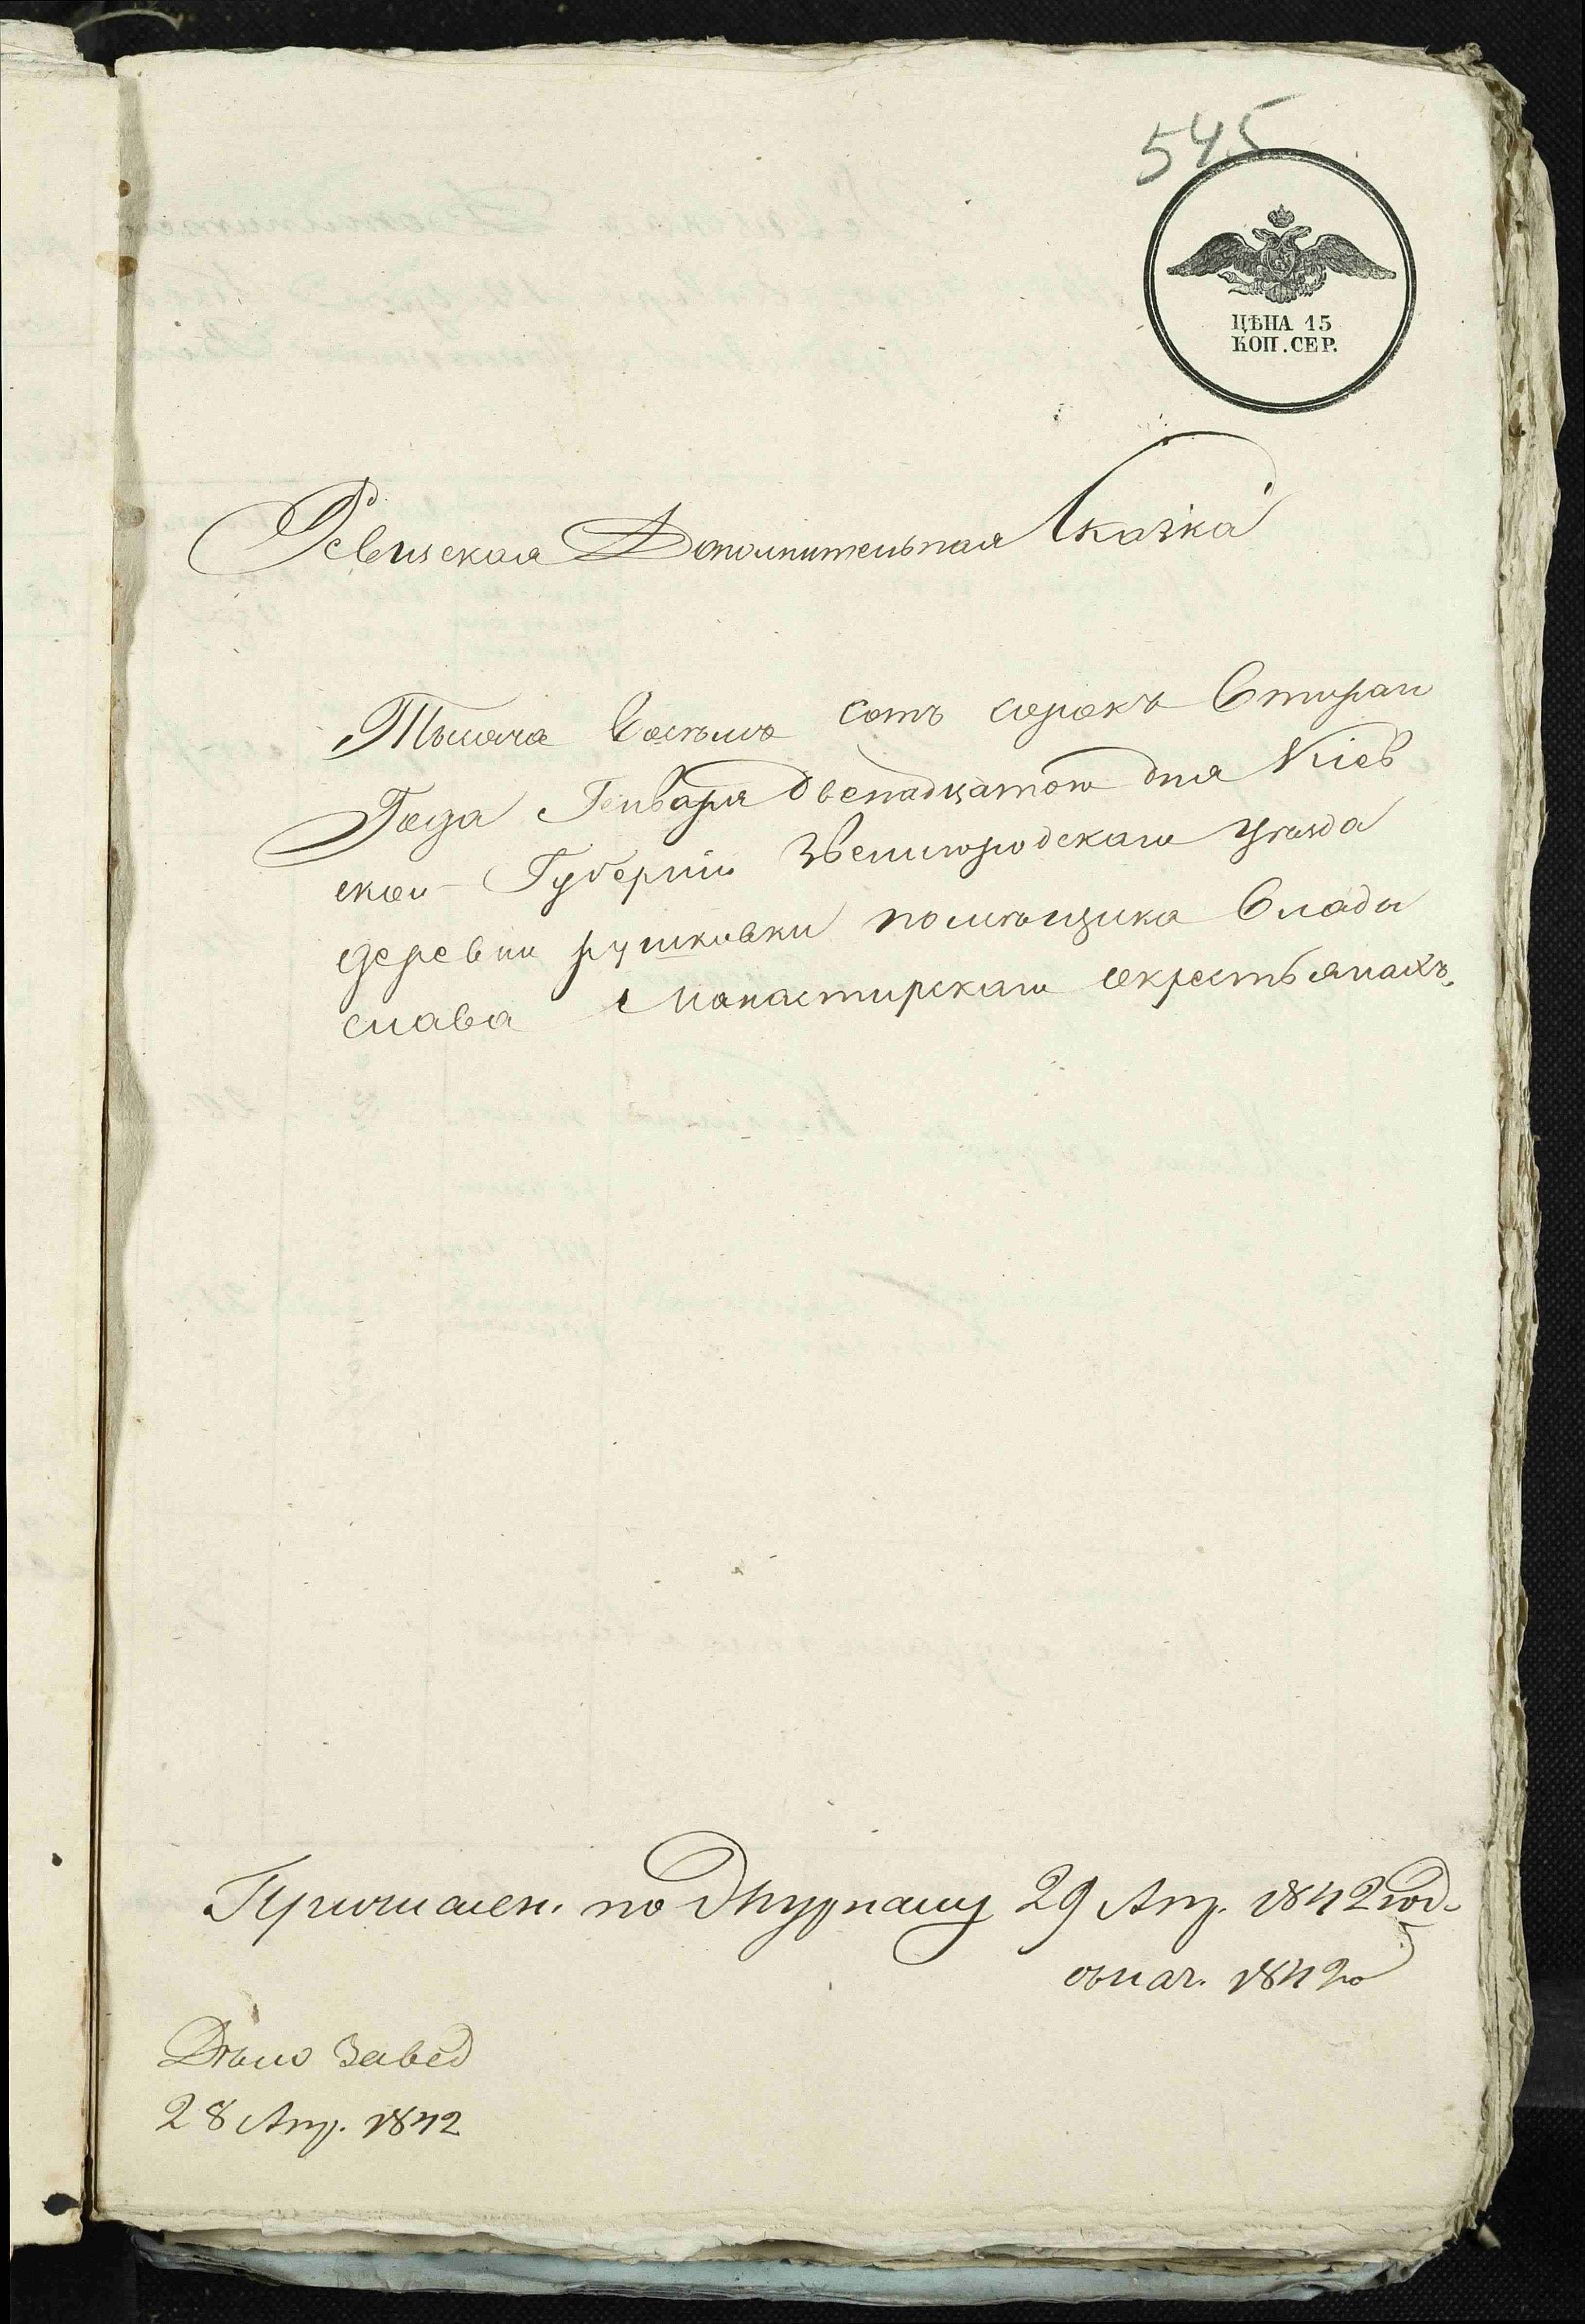 545
ЦѢНА 15
КОП. СЕР.
Ревизская Дополнительная Сказка
Тысяча Восемъ сотъ сорокъ Втораго
Года Генваря Двенадцатого дня Кіев
ской Губерніи Звенигородскаго уѣзда
деревни рушковки помѣщика Влади
слава Монастирскаго окрестьянахъ.
по Журналу 29 Апр. 1842 год.
1842го
Дѣло Завед
28 Апр. 1842